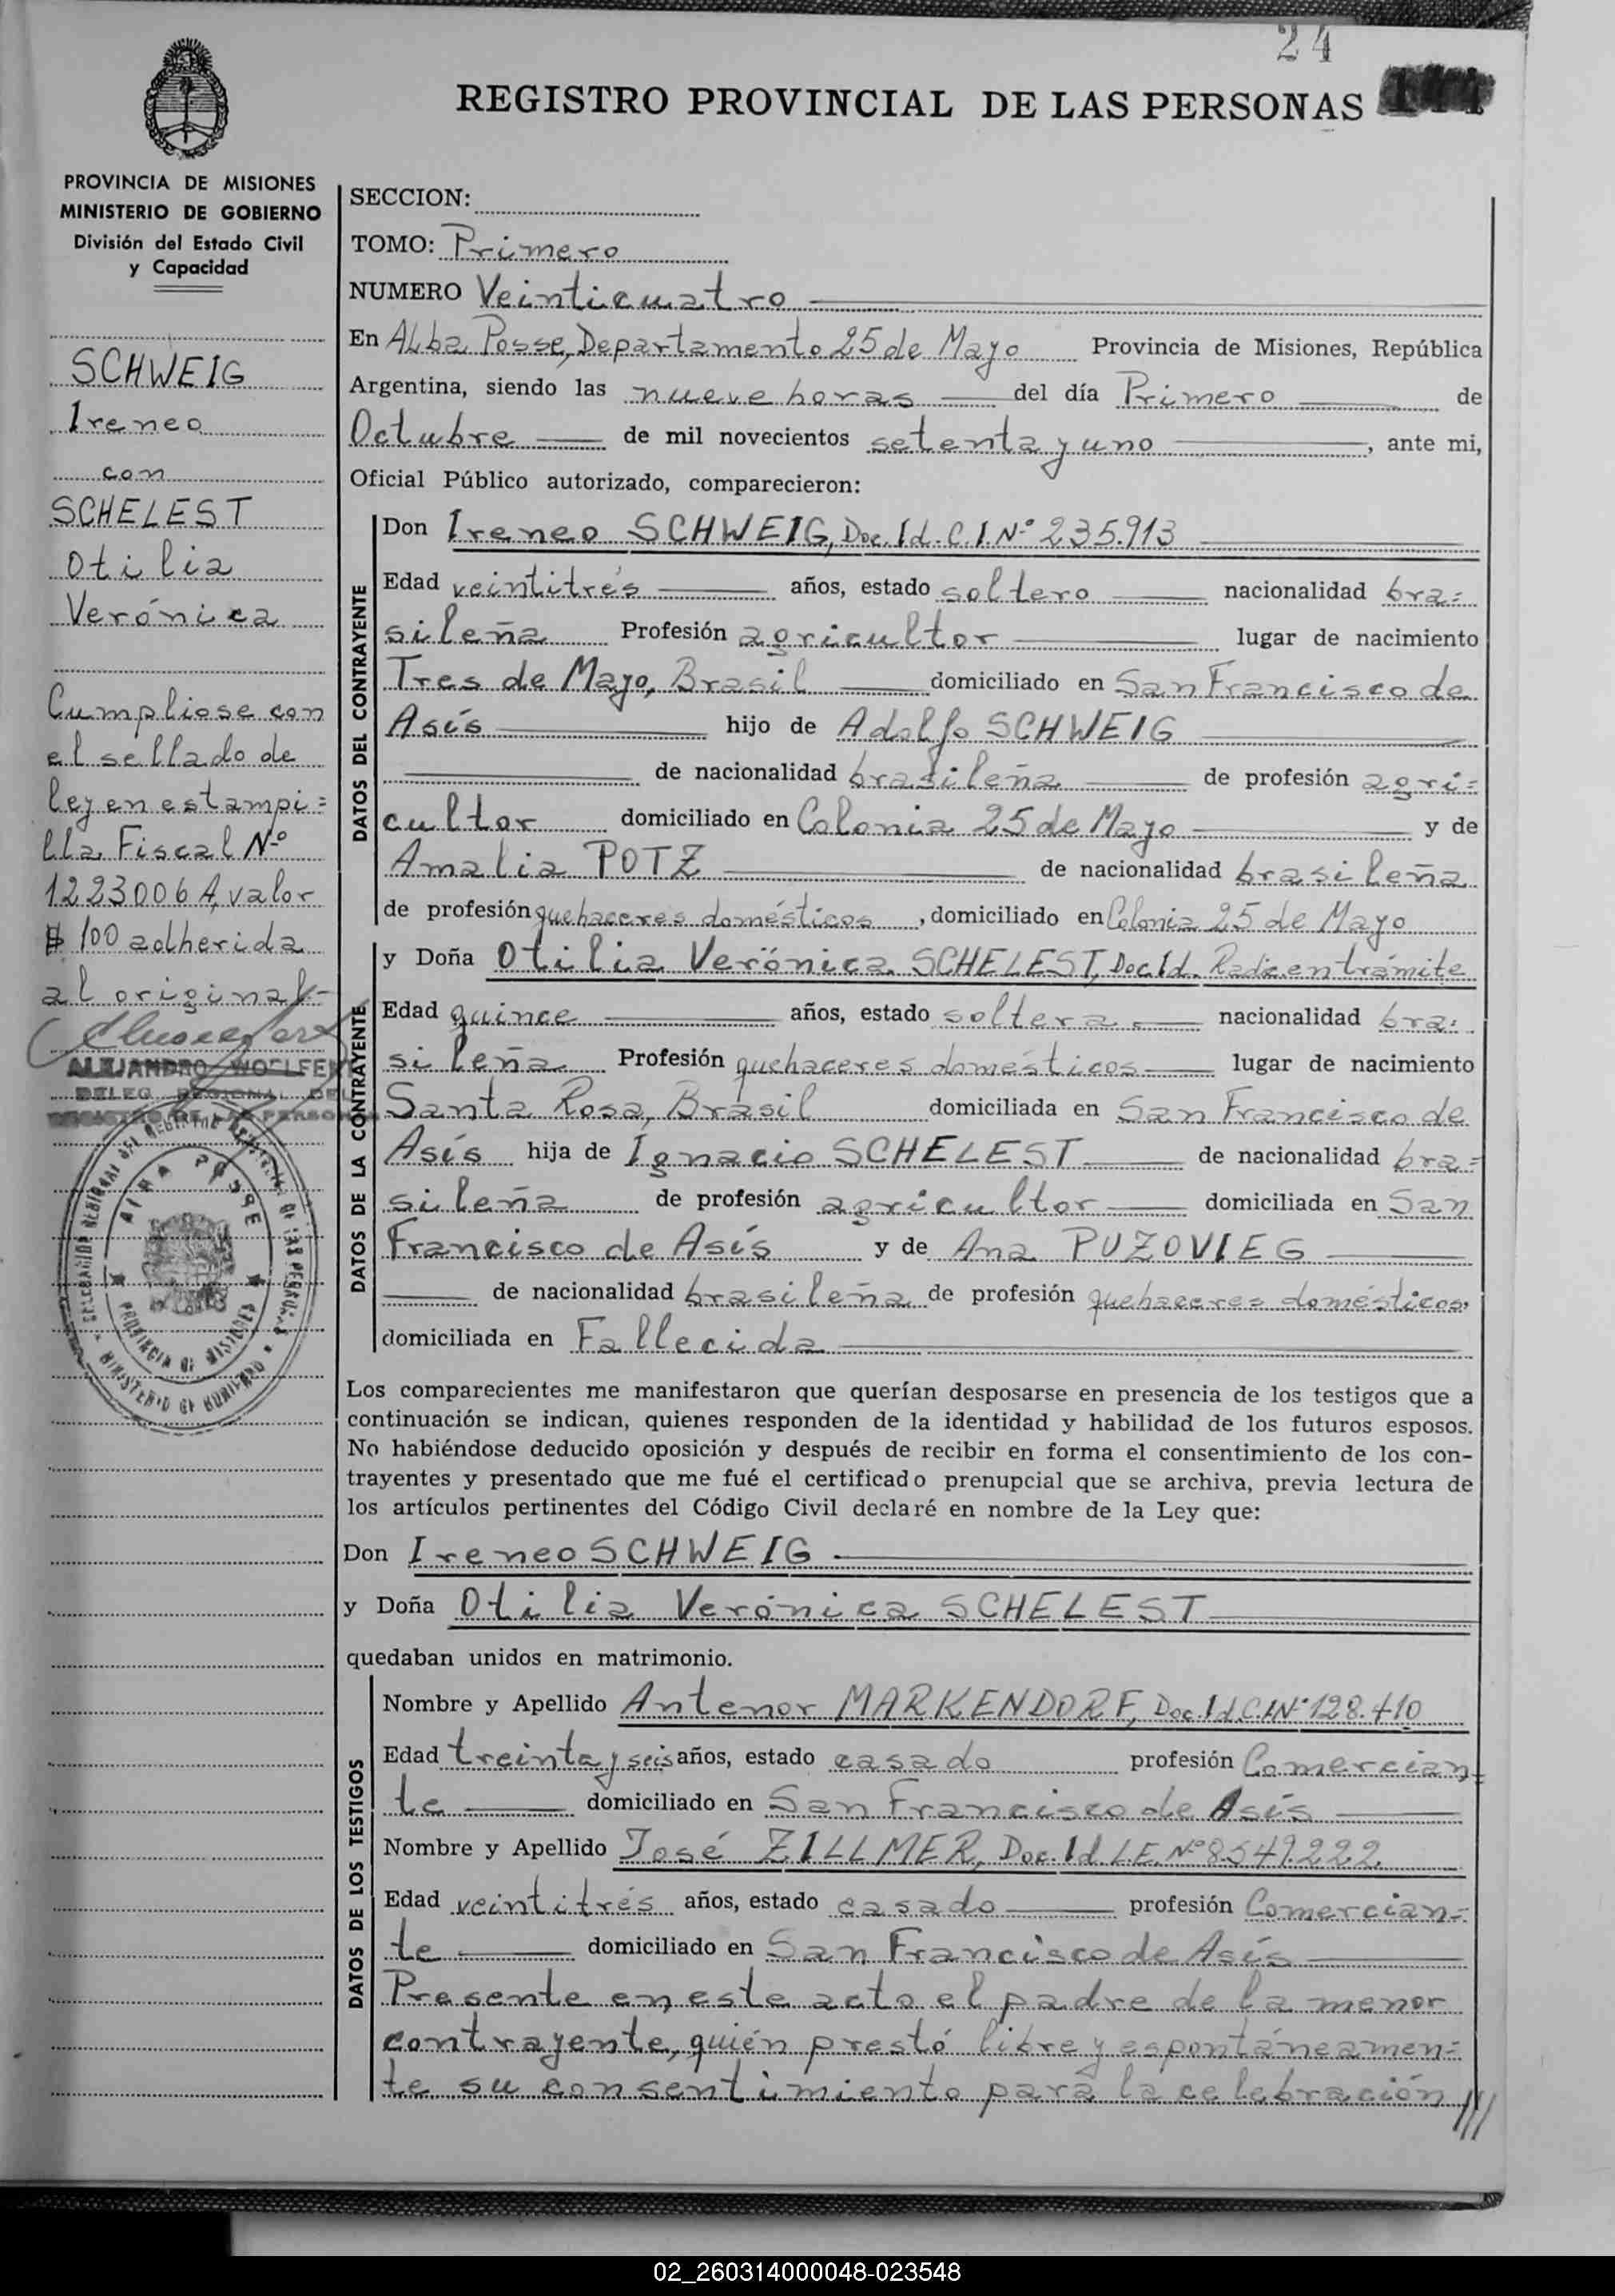 24
REGISTRO PROVINCIAL DE LAS PERSONAS
PROVINCIA DE MISIONES
MINISTERIO DE GOBIERNO
División del Estado Civil
y Capacidad
SCHWEIG
Ireneo
con
SCHELEST
Otilia
Verónica
Cumpliose con
el sellado de
ley en estampi=
lla Fiscal Nº
1223006 A, valor
$ 100 adherida
al original-
ALEJANDRO
DELEG. REGIONAL DEL
REGISTRO DE LAS PERSONAS
DELEGACION REGIONAL DEL REGISTRO PROVINCIAL DE LAS PERSONAS
ALBA POSSE
PROVINCIA DE MISIONES
MINISTERIO DE GOBIERNO
SECCION:
TOMO: Primero
NUMERO Veinticuatro
En Alba Posse, Departamento 25 de Mayo Provincia de Misiones, República
Argentina, siendo las nueve horas del día Primero de
Octubre de mil novecientos setenta y uno, ante mi,
Oficial Público autorizado, comparecieron:
DATOS DEL CONTRAYENTE
Don Ireneo SCHWEIG, Doc. Id. C.I. Nº 235.913
Edad veintitrés años, estado soltero nacionalidad bra=
sileña Profesión agricultor lugar de nacimiento
Tres de Mayo, Brasil domiciliado en San Francisco de
Asís hijo de Adolfo SCHWEIG
de nacionalidad brasileña de profesión agri=
cultor domiciliado en Colonia 25 de Mayo y de
Amalia POTZ de nacionalidad brasileña
de profesión quehaceres domésticos, domiciliado en Colonia 25 de Mayo
DATOS DE LA CONTRAYENTE
y Doña Otilia Verónica SCHELEST, Doc. Id. Radic. en trámite
Edad quince años, estado soltera nacionalidad bra=
sileña Profesión quehaceres domésticos lugar de nacimiento
Santa Rosa, Brasil domiciliada en San Francisco de
Asís hija de Ignacio SCHELEST de nacionalidad bra=
sileña de profesión agricultor domiciliada en San
Francisco de Asís y de Ana PUZOVIEG
de nacionalidad brasileña de profesión quehaceres domésticos,
domiciliada en Fallecida
Los comparecientes me manifestaron que querían desposarse en presencia de los testigos que a
continuación se indican, quienes responden de la identidad y habilidad de los futuros esposos.
No habiéndose deducido oposición y después de recibir en forma el consentimiento de los con-
trayentes y presentado que me fué el certificado prenupcial que se archiva, previa lectura de
los artículos pertinentes del Código Civil declaré en nombre de la Ley que:
Don Ireneo SCHWEIG
y Doña Otilia Verónica SCHELEST
quedaban unidos en matrimonio.
DATOS DE LOS TESTIGOS
Nombre y Apellido Antenor MARKENDORF, Doc. Id. C.I. Nº 128.410
Edad treinta y seis años, estado casado profesión Comercian=
te domiciliado en San Francisco de Asís
Nombre y Apellido José ZILLMER, Doc. Id. L.E. Nº 8.549.222
Edad veintitrés años, estado casado profesión Comercian=
te domiciliado en San Francisco de Asís
Presente en este acto el padre de la menor
contrayente, quién prestó libre y espontáneamen=
te su consentimiento para la celebración ///
02_260314000048-023548